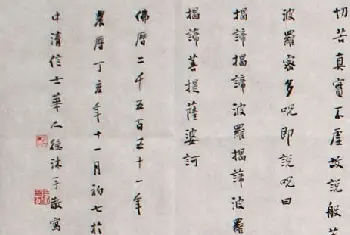 切苦真實不虛故說般若
波羅蜜多咒即說咒曰
揭諦揭諦波羅揭諦波羅
揭諦菩提薩婆訶
佛曆二千五百五十一年
農曆丁亥年十一月初七於
中清信士華人德沐手敬寫